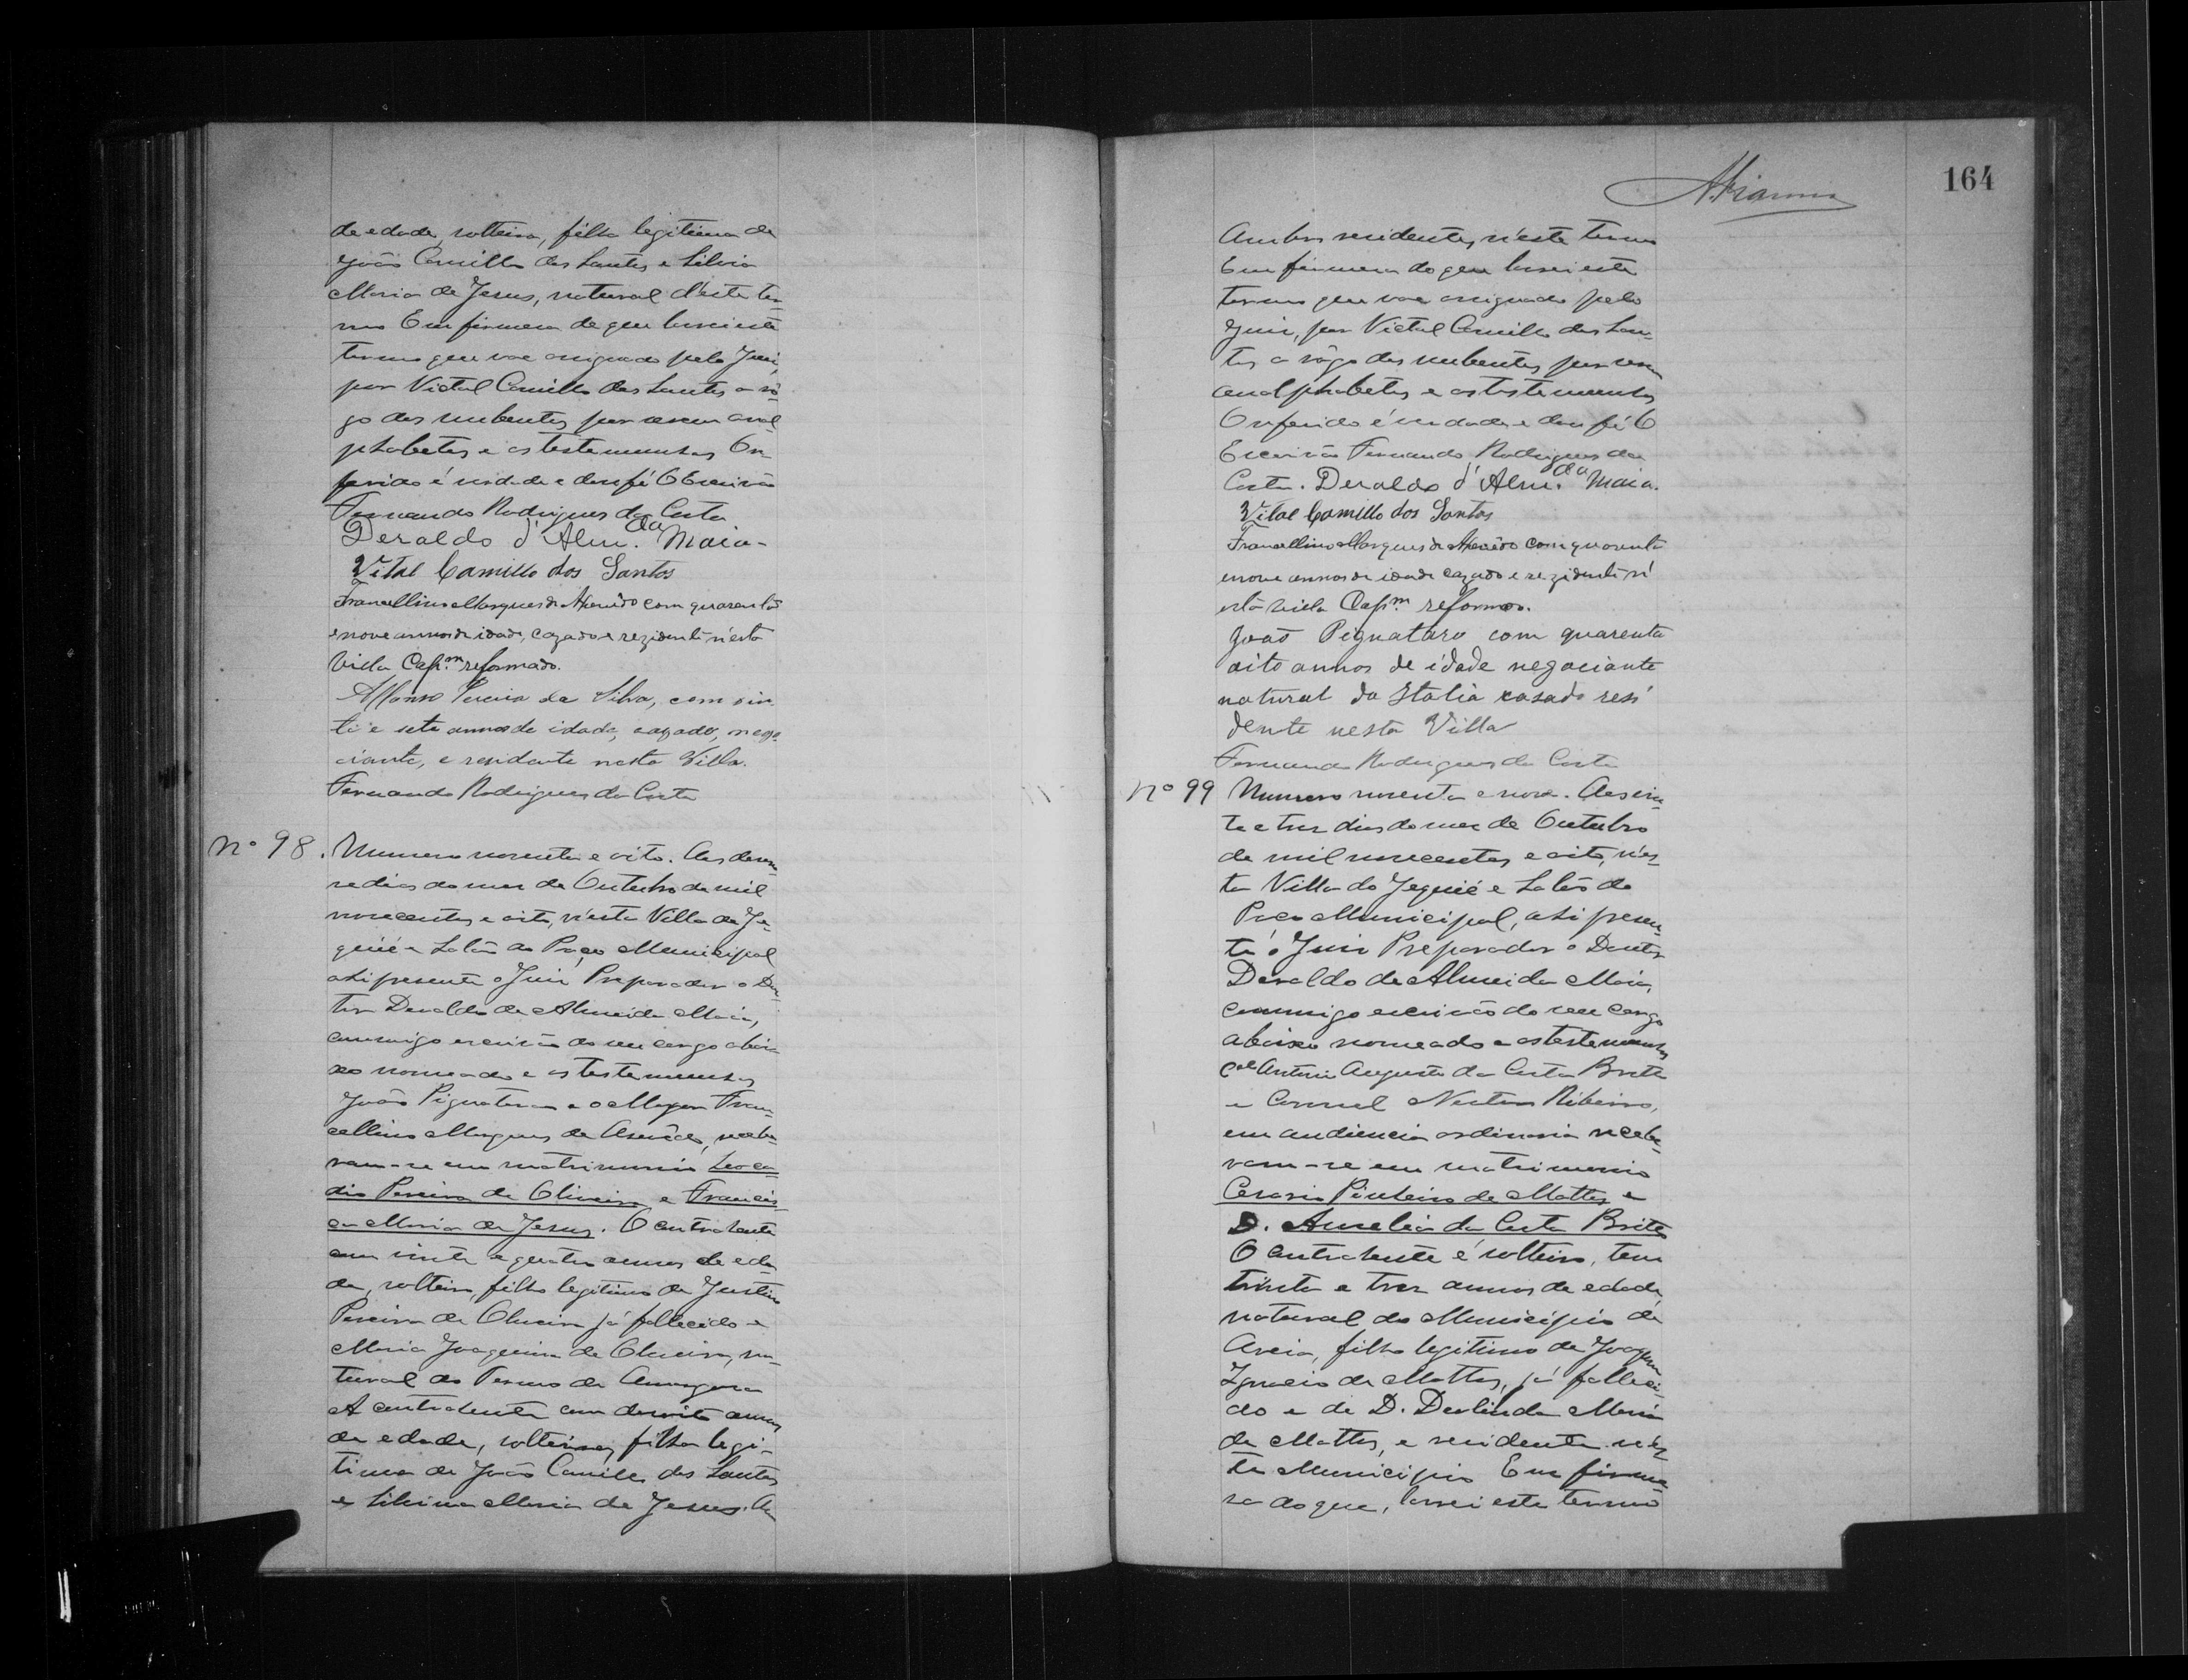 de edade, solteira, filha legitima de
João Camillo dos Santos e Silvia
Maria de Jesus, natural d'este ter-
mo Em firmeza de que lavrei este
termo que vae assignado pelo Juiz,
por Victal Camillo dos Santos a rô-
go dos nubentes por serem anal-
phabetos e as testemunhas O re-
ferido é verdade e dou fé O Escrivão
Fernando Rodrigues da Costa
Deraldo d'Alm.da Maia-
Vital Camillo dos Santos
Francellino Marques de Azevêdo com quarenta
e nove annos de idade, cazado e rezidente n'esta
Villa Capm. reformado.
Affonso Pereira da Silva, com vin-
te e sete annos de idade, cazado, nego-
ciante, e residente nesta Villa.
Fernando Rodrigues da Costa
Nº 98. Numero noventa e oito. Aos deseno-
ve dias do mez de Outubro de mil
novecentos e oito, n'esta Villa de Je-
quié e Salão do Paço Municipal
ahi presente o Juiz Preparador o Dou-
tor Deraldo de Almeida Maia,
commigo escrivão do seu cargo abai-
xo nomeado e as testemunhas
João Pignataro e o Major Fran-
cellino Marques de Azevêdo, recebe-
ram-se em matrimonio Leoca-
dio Pereira de Oliveira e Francis-
ca Maria de Jesus. O contrahente
com vinte e quatro annos de eda-
de, solteiro, filho legitimo de Justino
Pereira de Oliveira já fallecido e
Maria Joaquina de Oliveira, na-
tural do Termo de Amargosa
A contrahente com desoito annos
de edade, solteira, filha legi-
tima de João Camillo dos Santos
e Silvina Maria de Jesus. Am
164
Ambos residentes n'este termo
Em firmeza do que lavrei este
termo que vae assignado pelo
Juiz, por Victal Camillo dos San-
tos a rôgo dos nubentes por serem
analphabetos e as testemunhas
O referido é verdade e dou fé O
Escrivão Fernando Rodrigues da
Costa. Deraldo d'Alm.da Maia.
Vital Camillo dos Santos
Francellino Marques de Azevêdo com quarenta
e nove annos de idade cazado e rezidente n'
esta Villa Capm. reformado.
João Pignataro com quarenta
oito annos de idade negociante
natural da Italia casado resi
dente nesta Villa
Fernando Rodrigues da Costa
Nº 99 Numero noventa e nove. Aos vin-
te e tres dias do mez de Outubro
de mil novecentos e oito, n'es-
ta Villa do Jequié e Salão do
Paço Municipal, ahi presen-
te o Juiz Preparador o Doutor
Deraldo de Almeida Maia,
commigo escrivão do seu cargo
abaixo nomeado e as testemunhas
Cel Antonio Augusto da Costa Brito
e Coronel Nestor Ribeiro,
em audiencia ordinaria recebe-
ram-se em matrimonio
Cesario Pinheiro de Mattos e
D. Aurelia da Costa Brito
O contrahente é solteiro, tem
trinta e tres annos de edade,
natural do Municipio de
Areia, filho legitimo de Joaquim
Ignacio de Mattos, já falleci-
do e de D. Deolinda Maria
de Mattos, e residente n'es-
te Municipio Em firme-
sa do que, lavrei este termo